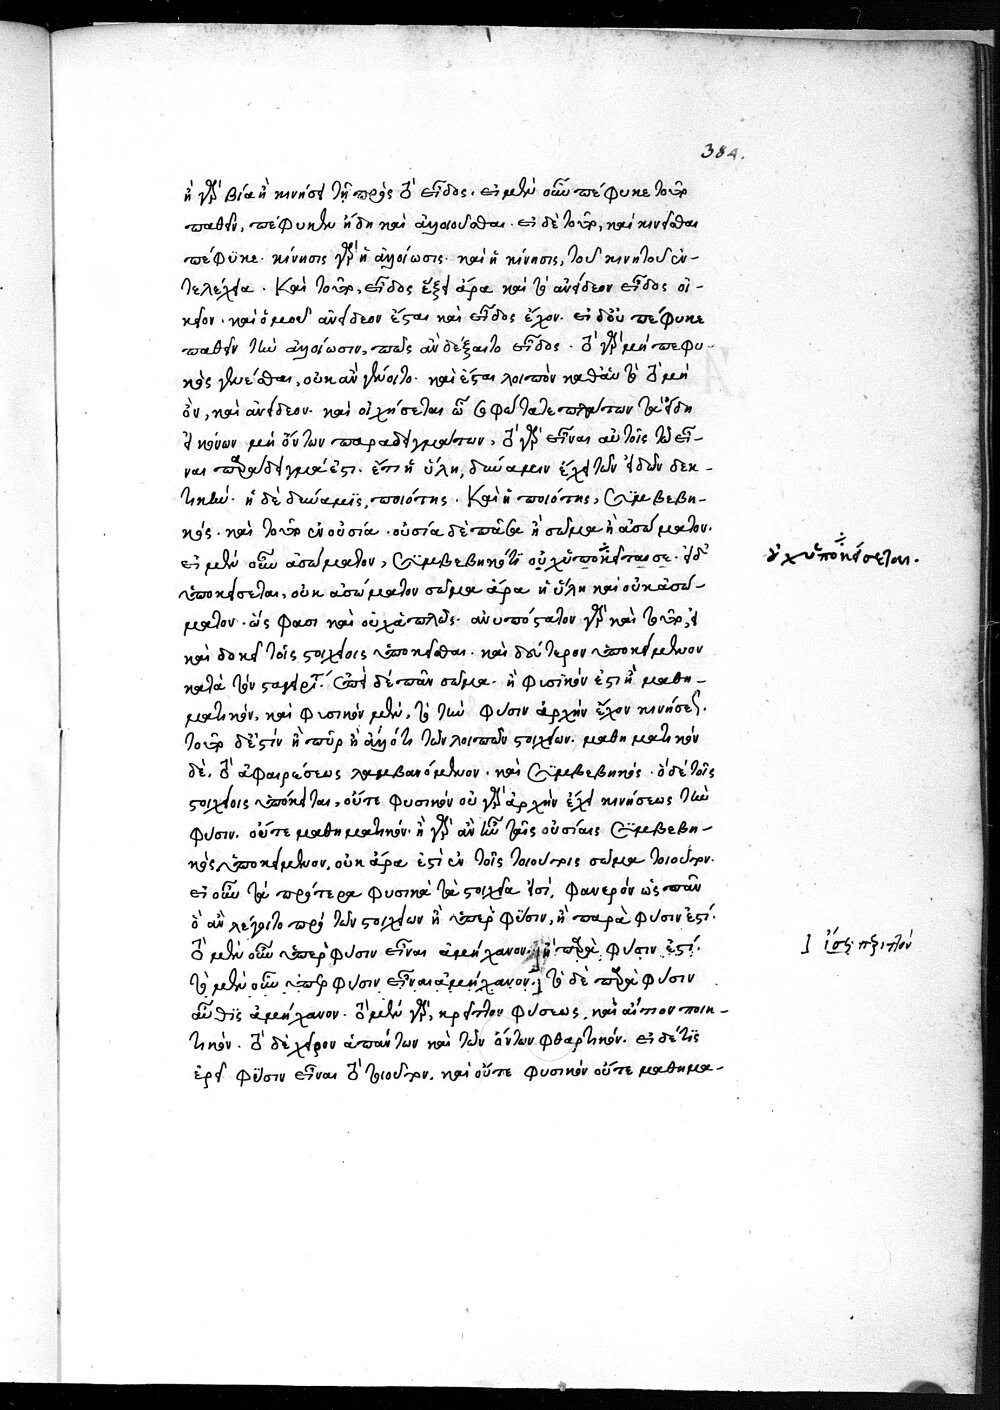 384.
ἢ γὰρ βία ἢ κινήσει τῇ πρὸς τὸ εἶδος. εἰ μὲν οὖν πέφυκε τοῦτο
παθεῖν, πέφυκεν ἤδη καὶ ἀλλοιοῦσθαι. εἰ δὲ τοῦτο, καὶ κινεῖσθαι
πέφυκε. κίνησις γὰρ ἡ ἀλλοίωσις. καὶ ἡ κίνησις, τοῦ κινητοῦ ἐν-
τελέχεια. Καὶ τοῦτο, εἶδος ἕξει ἄρα καὶ τὸ ἀνείδεον εἶδος οἰ-
κεῖον. καὶ ὁμοῦ ἀνείδεον ἔσται καὶ εἶδος ἔχον. εἰ δ' οὐ πέφυκε
παθεῖν τὴν ἀλλοίωσιν, πῶς ἂν δέξαιτο εἶδος. τὸ γὰρ μὴ πεφυ-
κὸς γενέσθαι, οὐκ ἂν γένοιτο. καὶ ἔσται λοιπὸν καθ' αὑτὸ τὸ μὴ
ὄν, καὶ ἀνείδεον. καὶ οἰχήσεται ὦ σοφώτατε πλάτων τὰ εἴδη
εἰκόνων μὴ ὄντων παραδείγματων, τὸ γὰρ εἶναι αὐτοῖς τῷ εἶ-
ναι παραδείγμα ἐστι. ἔτι ἡ ὕλη, δύναμιν ἔχει τῶν εἰδῶν δεκ-
τικήν. ἡ δὲ δύναμις, ποιότης. Καὶ ἡ ποιότης, συμβεβη-
κός. καὶ τοῦτο ἐν οὐσία. οὐσία δὲ πᾶσα ἢ σῶμα ἢ ἀσώματον.
εἰ μὲν οὖν ἀσώματον, συμβεβηκότι οὐχ ὑποκείσεται
ὑποκείσεται, οὐκ ἀσώματον σῶμα ἄρα ἡ ὕλη καὶ οὐκ ἀσώ-
ματον. ὥς φασι καὶ οὐχ ἁπλῶς. ἀνυπόστατον γὰρ καὶ τοῦτο, εἰ
καὶ δοκεῖ τοῖς στοιχείοις ὑποκεῖσθαι. καὶ δεύτερον ὑποκείμενον
κατὰ τὸν σταγειρί. ἐπεὶ δὲ πᾶν σῶμα. ἢ φυσικόν ἐστι ἢ μαθη-
ματικόν, καὶ φυσικὸν μὲν, τὸ τὴν φύσιν ἀρχὴν ἔχον κινήσεως.
τοῦτο δ' ἐστὶν ἢ πῦρ ἢ ἄλλό τι τῶν λοιπῶν στοιχείων. μαθηματικὸν
δὲ. τὸ ἀφαιρέσεως λαμβανόμενον. καὶ συμβεβηκός. ὁ δὲ τοῖς
στοιχείοις ὑπόκειται, οὔτε φυσικόν οὐ γὰρ ἀρχὴν ἔχει κινήσεως τὴν
φύσιν. οὔτε μαθηματικόν. ἢ γὰρ ἂν ἦν ταῖς οὐσίαις συμβεβη-
κὸς ὑποκείμενον, οὐκ ἄρα ἐστὶ ἐν τοῖς τοιούτοις σῶμα τοιοῦτον.
εἰ οὖν τὰ πρότερα φυσικὰ τὰ στοιχεῖα εἰσί, φανερόν ὡς πᾶν
ὃ ἂν λέγοιτο πρὸ τῶν στοιχείων ἢ ὑπὲρ φύσιν, ἢ παρὰ φύσιν ἐστί.
τὸ μὲν οὖν ὑπὲρ φύσιν εἶναι ἀμήχανον. ἢ παρὰ φύσιν ἐστί.
τὸ μὲν οὖν ὑπὲρ φύσιν εἶναι ἀμήχανον. τὸ δὲ παρὰ φύσιν
αὖθις ἀμήχανον. τὸ μὲν γὰρ, κρεῖττον φύσεως, καὶ αἴτιον ποιη-
τικόν. τὸ δὲ χεῖρον ἁπάντων καὶ τῶν ὄντων φθαρτικόν. εἰ δέ τις
ἐρεῖ φύσιν εἶναι τὸ τοιοῦτον. καὶ οὔτε φυσικόν οὔτε μαθημα-
οὐχ ὑποκείσεται.
] ἴσως περιττόν